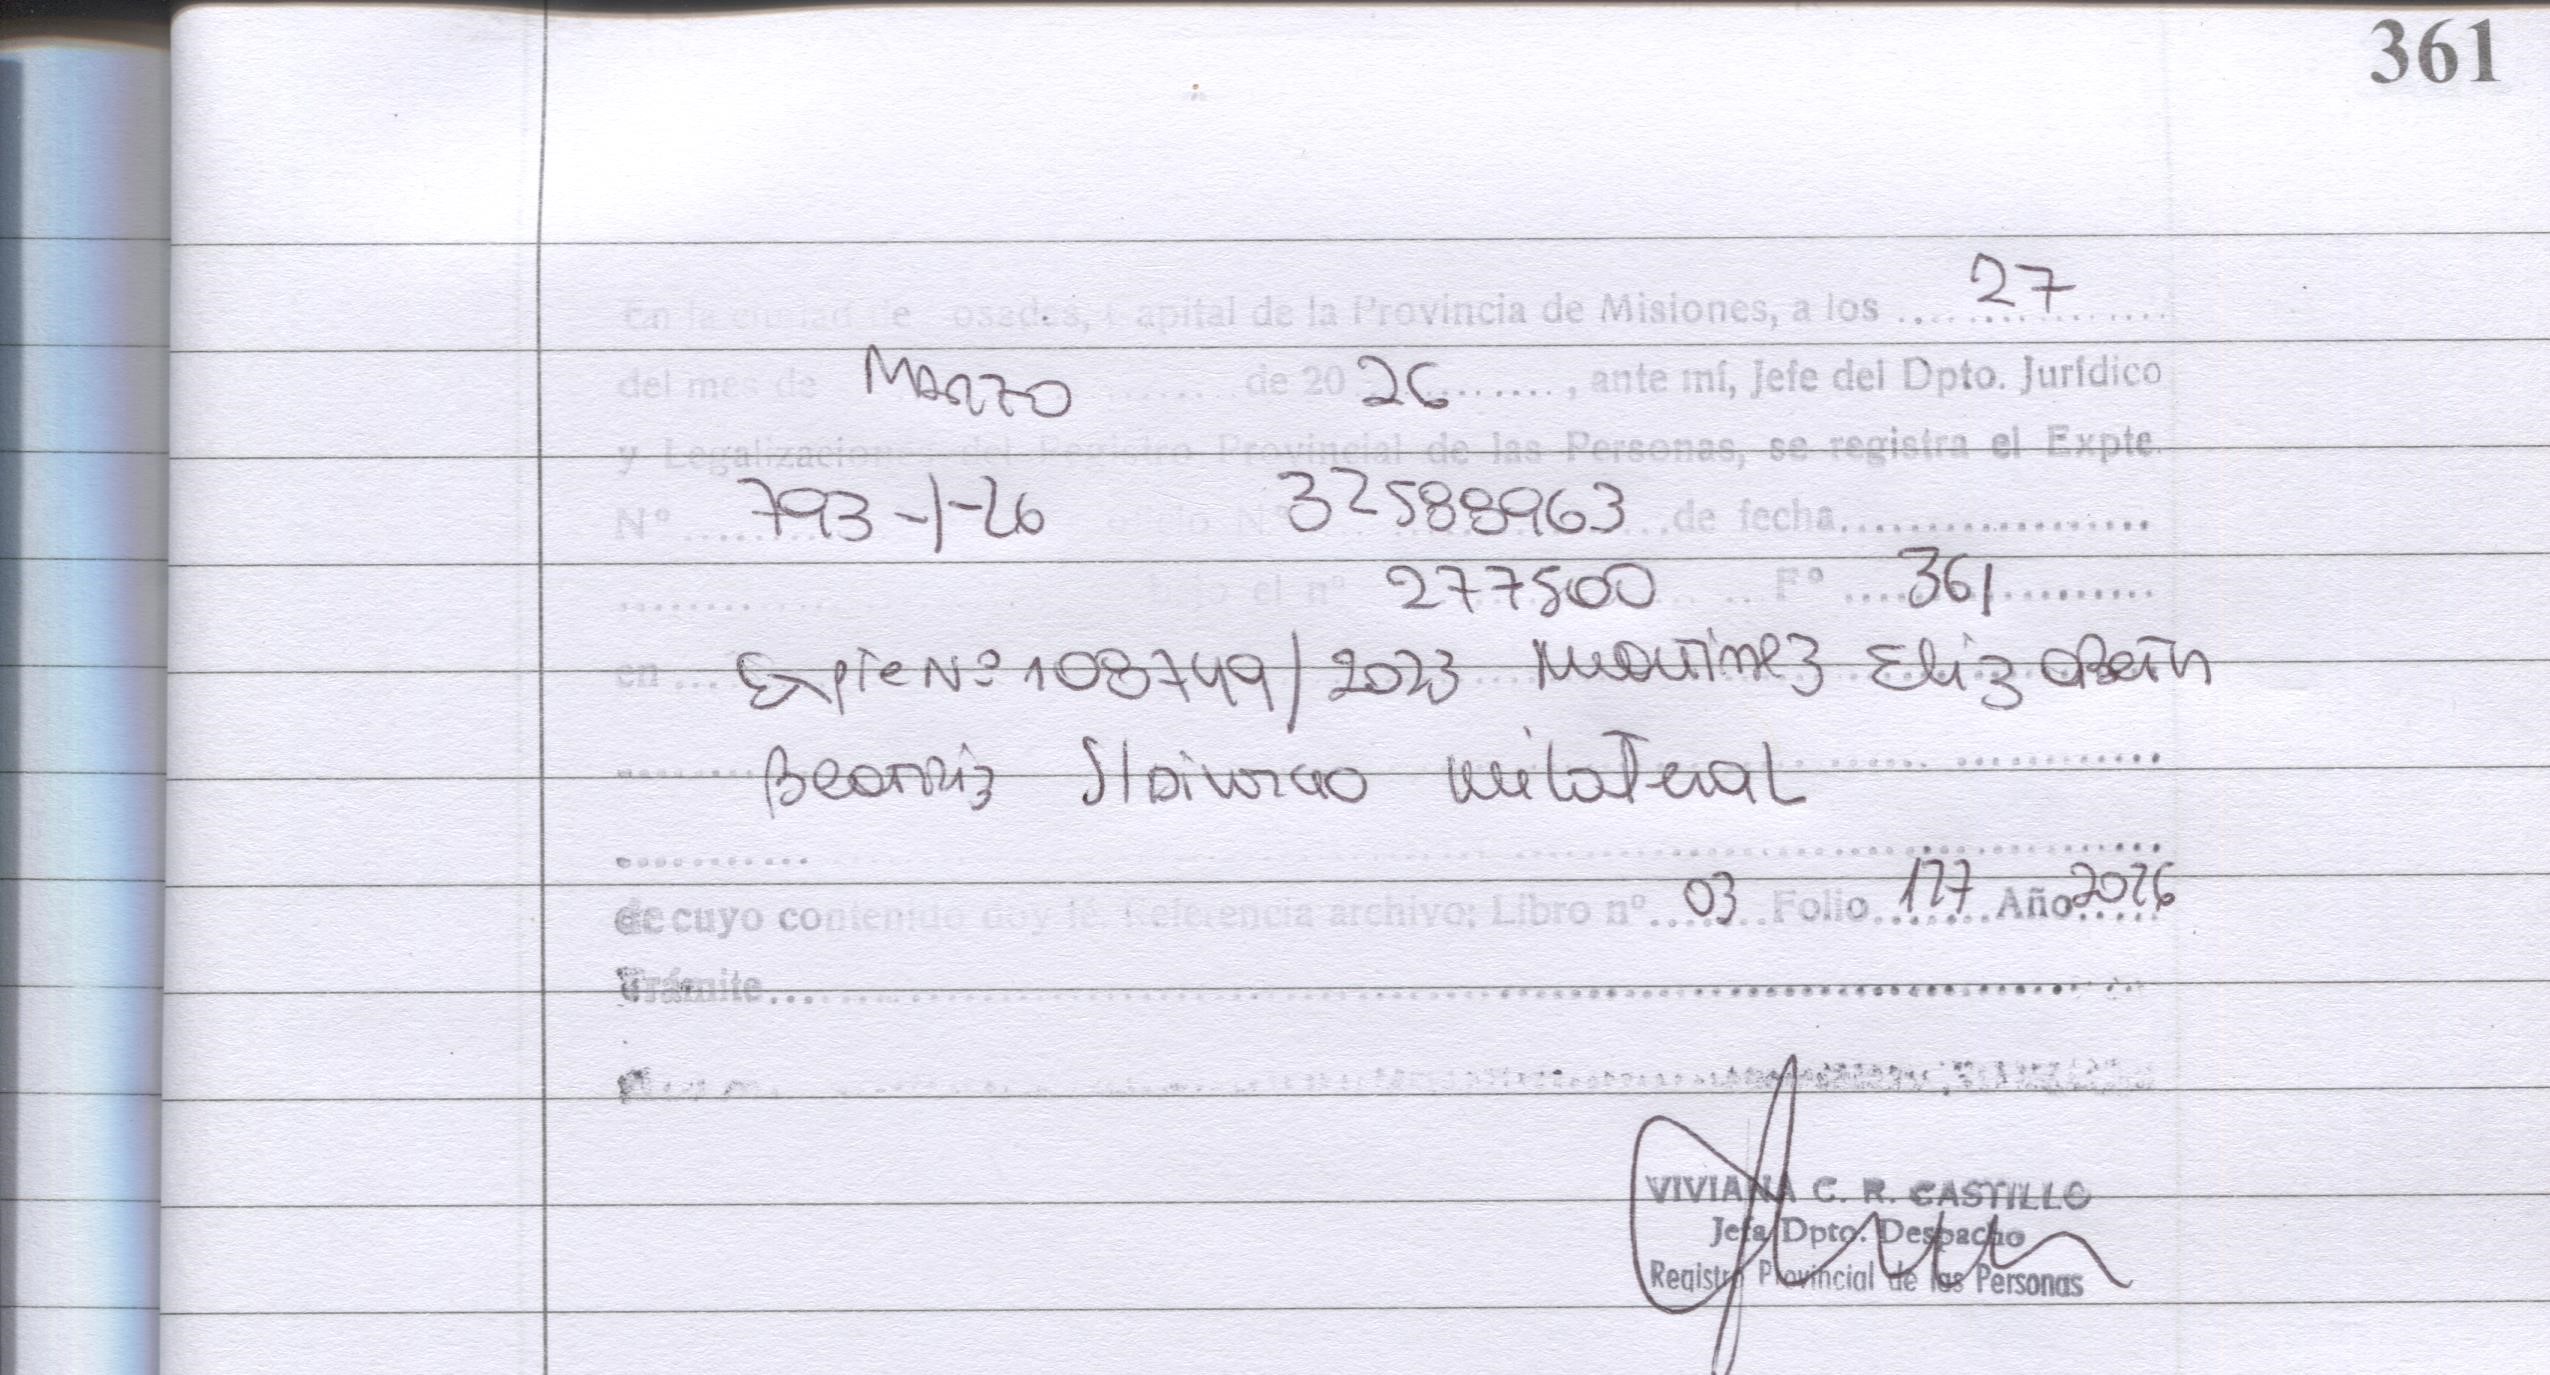 361
En la ciudad de Posadas, Capital de la Provincia de Misiones, a los ..... 27 .....
del mes de Marzo ........ de 20 26 ........, ante mí, Jefe del Dpto. Jurídico
y Legalizaciones del Registro Provincial de las Personas, se registra el Expte.
Nº ..... 793-1-26 Nº 32588963 ..... de fecha ..................
.......... bajo el nº 277500 ..... Fº ..... 361 ..........
en ... Expte Nº 108749/2023 Martinez Elizabeth
Beatriz S/Divorcio unilateral
de cuyo contenido doy fé. Referencia archivo: Libro nº ..... 03 ..... Folio ..... 177 ..... Año 2026
Trámite ..............................
VIVIANA C. R. CASTILLO
Jefa Dpto. Despacho
Registro Provincial de las Personas